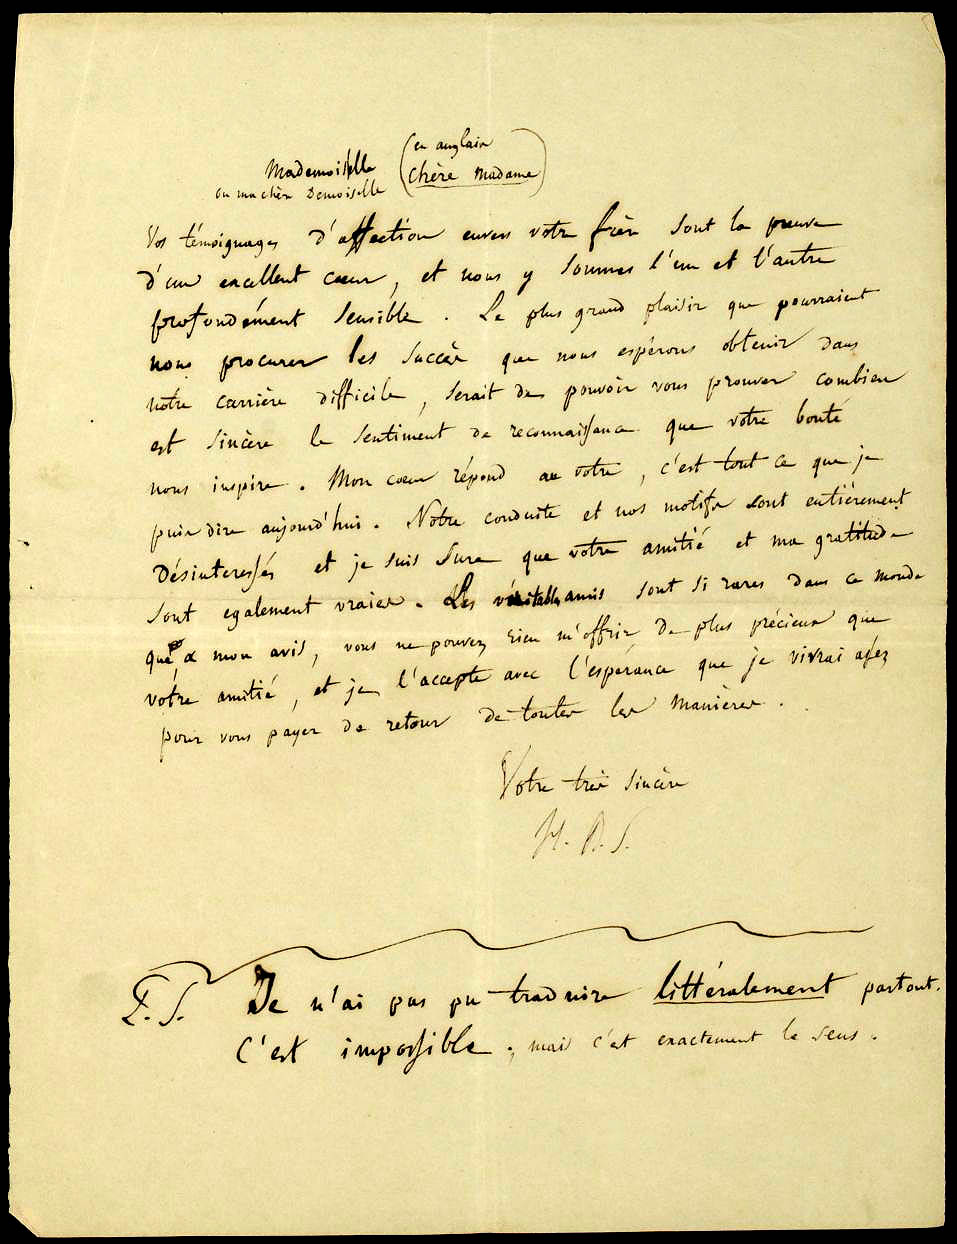 (en anglais
Mademoiselle (chère Madame)
ou ma chère Demoiselle
Vos témoignages d'affection envers votre frère sont la preuve
d'un excellent cœur, et nous y sommes l'un et l'autre
profondément sensible. Le plus grand plaisir que pourraient
nous procurer les succès que nous espérons obtenir dans
notre carrière difficile, serait de pouvoir vous prouver combien
est sincère le sentiment de reconnaissance que votre bonté
nous inspire. Mon cœur répond au votre, c'est tout ce que je
puis dire aujourd'hui. Notre conduite et nos motifs sont entièrement
désinteressés et je suis sure que votre amitié et ma gratitude
sont egalement vraies. Les véritables amis sont si rares dans ce monde
que, a mon avis, vous ne pouvez rien m'offrir de plus précieux que
votre amitié, et je l'accepte avec l'espérance que je vivrai assez
pour vous payer de retour de toutes les manières.
Votre très sincère
H. B. S.
P. S. Je n'ai pas pu traduire littéralement partout.
C'est impossible; mais c'est exactement le sens.